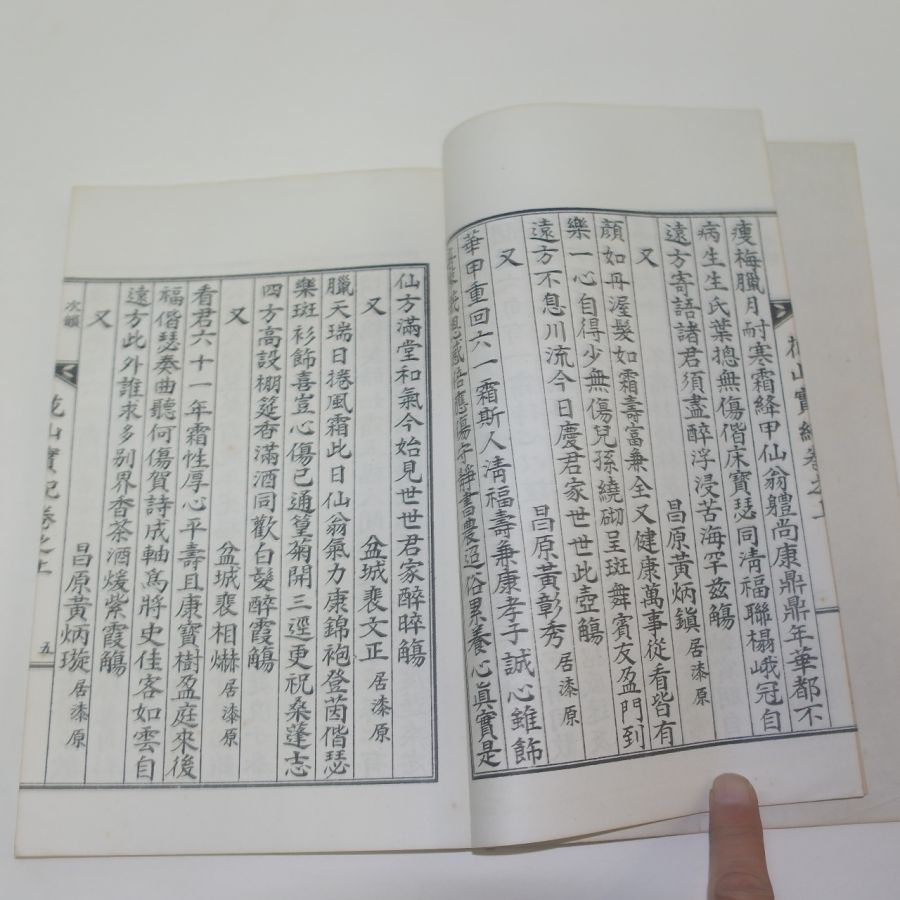 瘦梅臘月耐寒霜絳甲仙翁體尚康鼎鼎年華都不
病生生氏葉摠無傷偕床寶瑟同清福聯榻峨冠自
遠方寄語諸君須盡醉浮浸苦海罕玆觴
昌原黃炳鎭 居漆原
又
顔如丹渥髮如霜壽富兼全又健康萬事從看皆有
樂一心自得少無傷兒孫繞砌呈斑舞賓友盈門到
遠方不息川流今日慶君家世世此壺觴
昌原黃彰秀 居漆原
又
華甲重回六一霜斯人淸福壽兼康孝子誠心雖飾
應傷守靜書農迢俗累養心眞實是
仙方滿堂和氣今始見世世君家醉晬觴
盆城裴文正 居漆原
又
臘天瑞日捲風霜此日仙翁氣力康錦袍登茵偕瑟
樂斑衫飾喜豈心傷已通篁菊開三逕更祝桑蓬志
四方高設棚筵杳滿酒同歡白髮醉霞觴
盆城裴相爀 居漆原
又
看君六十一年霜性厚心平壽且康寶樹盈庭來後
福偕瑟奏曲聽何傷賀詩成軸爲將史佳客如雲自
遠方此外誰求多別界香茶酒煖紫霞觴
昌原黃炳璇 居漆原
又
次韻
花山實記卷之上
五